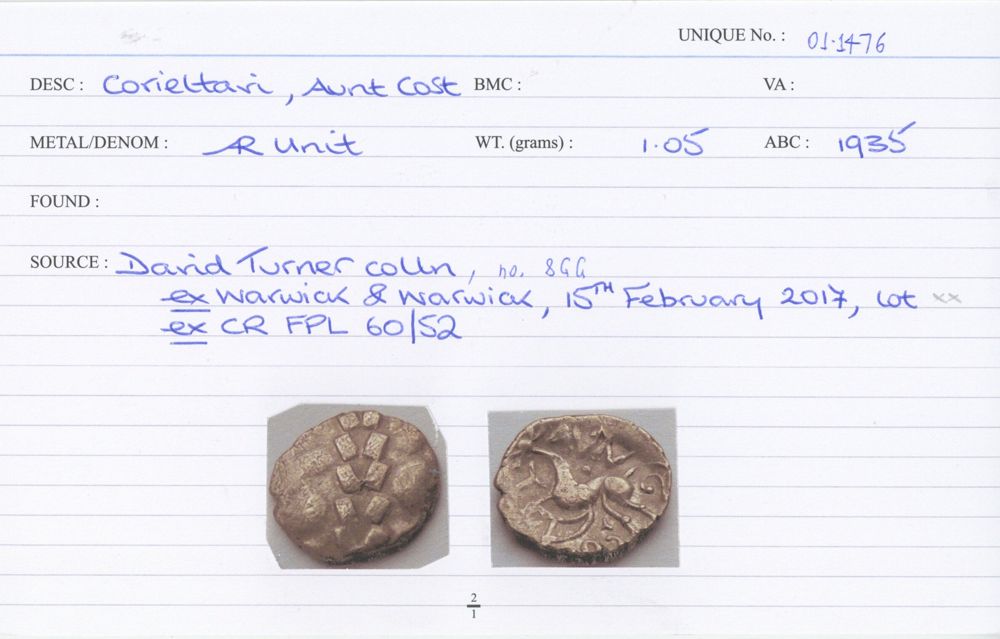 UNIQUE No. : 01·1476
DESC : Corieltavi, Aunt Cost BMC : VA :
METAL/DENOM : AR Unit WT. (grams) : 1·05 ABC : 1935
FOUND :
SOURCE : David Turner colln, no. 866
ex Warwick & Warwick, 15TH February 2017, lot xx
ex CR FPL 60/52
2
1